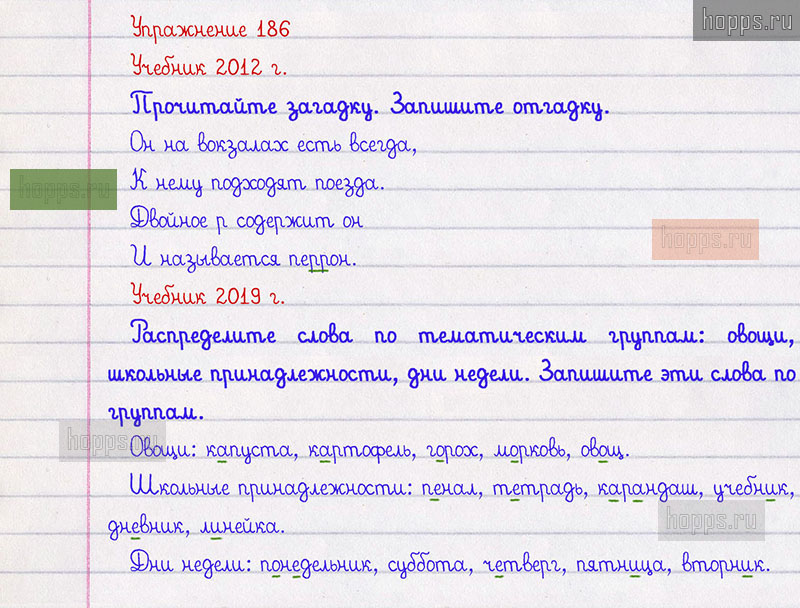 hopps.ru
Упражнение 186
Учебник 2012 г.
Прочитайте загадку. Запишите отгадку.
Он на вокзалах есть всегда,
hopps.ru
К нему подходят поезда.
Двойное р содержит он
hopps.ru
И называется перрон.
Учебник 2019 г.
Распределите слова по тематическим группам: овощи,
школьные принадлежности, дни недели. Запишите эти слова по
группам.
hopps.ru
Овощи: капуста, картофель, горох, морковь, овощ.
Школьные принадлежности: пенал, тетрадь, карандаш, учебник,
hopps.ru
дневник, линейка.
Дни недели: понедельник, суббота, четверг, пятница, вторник.